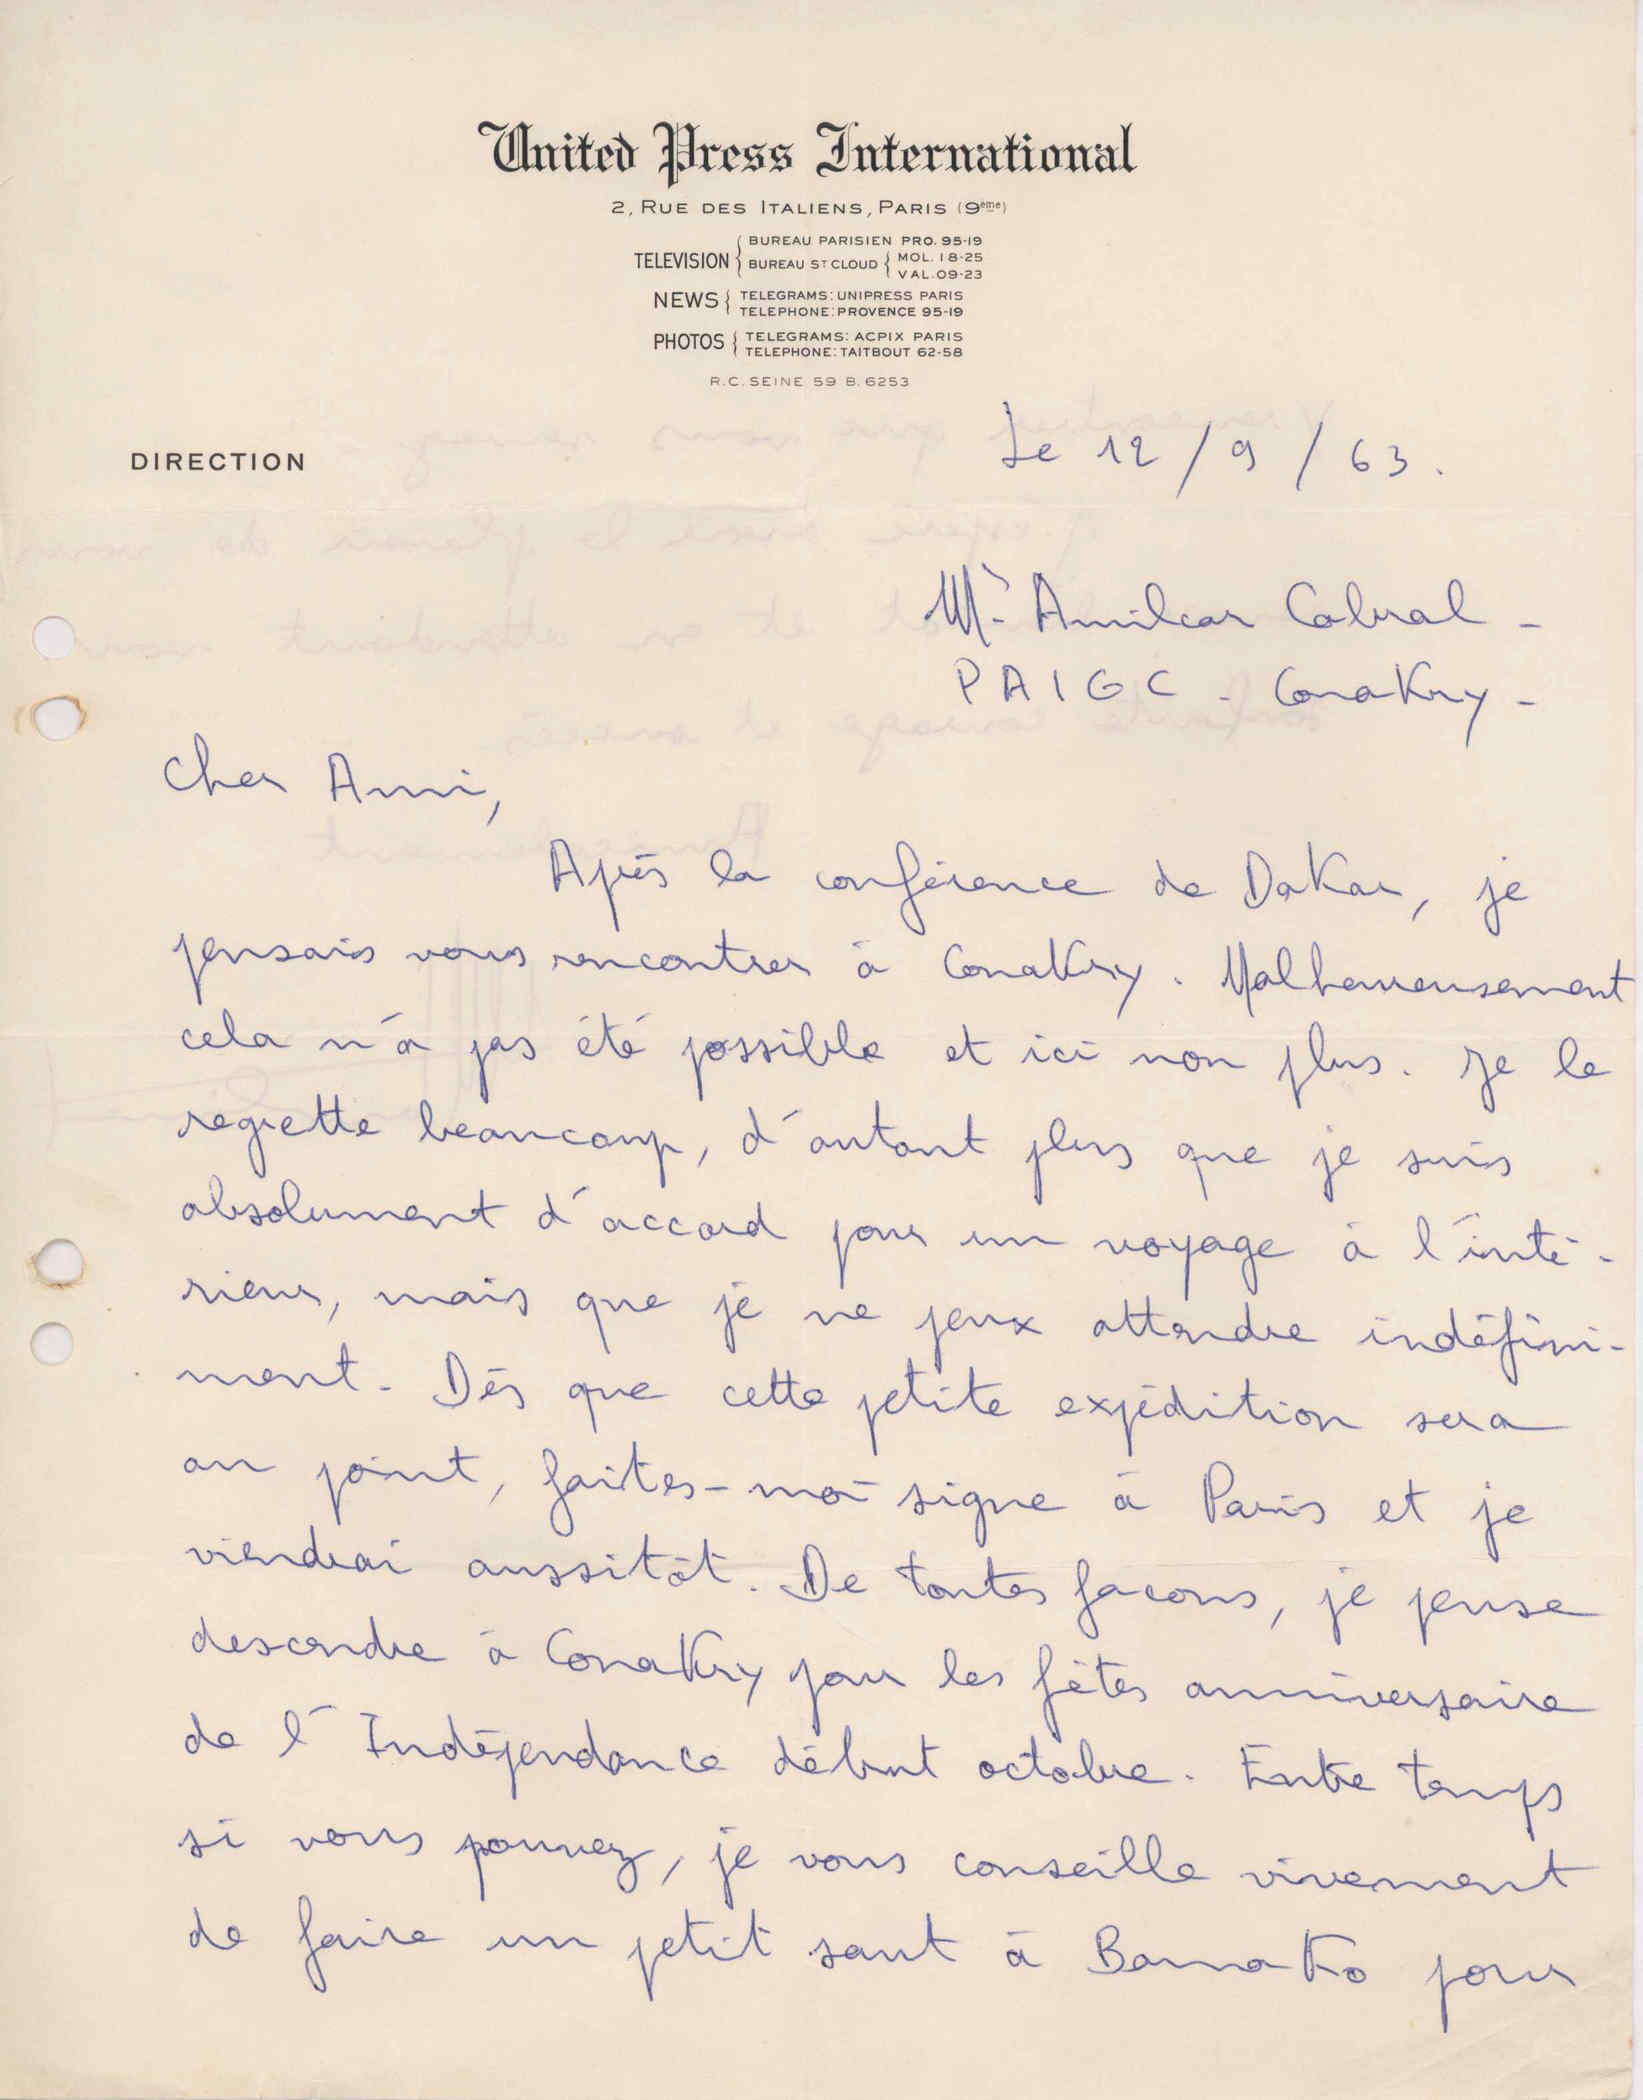 United Press International
2, RUE DES ITALIENS, PARIS (9ème)
TELEVISION { BUREAU PARISIEN PRO. 95-19
BUREAU ST CLOUD { MOL. 18-25
VAL. 09-23
NEWS { TELEGRAMS: UNIPRESS PARIS
TELEPHONE: PROVENCE 95-19
PHOTOS { TELEGRAMS: ACPIX PARIS
TELEPHONE: TAITBOUT 62-58
R.C. SEINE 59 B. 6253
DIRECTION
Le 12 / 9 / 63.
Mr Amilcar Cabral -
PAIGC - Conakry -
Cher Ami,
Après la conférence de Dakar, je
pensais vous rencontrer à Conakry. Malheureusement
cela n'a pas été possible et ici non plus. Je le
regrette beaucoup, d'autant plus que je suis
absolument d'accord pour un voyage à l'inté-
rieur, mais que je ne peux attendre indéfini-
ment. Dès que cette petite expédition sera
au point, faites-moi signe à Paris et je
viendrai aussitôt. De toutes facons, je pense
descendre à Conakry pour les fêtes anniversaire
de l'Indépendance début octobre. Entre temps
si vous pouvez, je vous conseille vivement
de faire un petit saut à Bamako pour